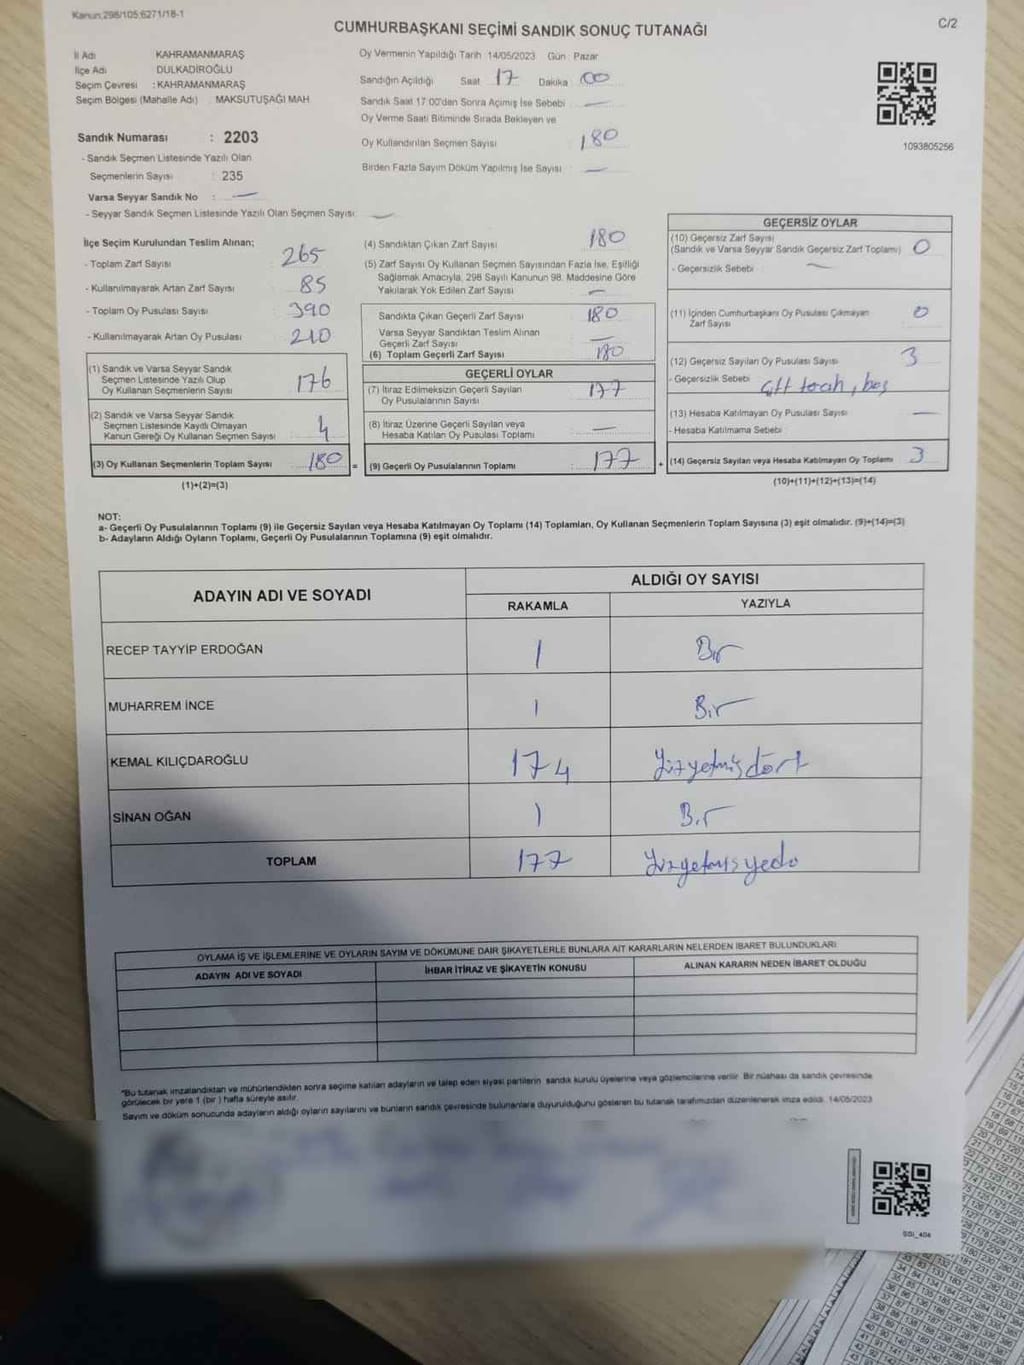 Kanun:298/105;6271/18-1
CUMHURBAŞKANI SEÇİMİ SANDIK SONUÇ TUTANAĞI
C/2
İl Adı KAHRAMANMARAŞ
İlçe Adı DULKADİROĞLU
Seçim Çevresi : KAHRAMANMARAŞ
Seçim Bölgesi (Mahalle Adı) : MAKSUTUŞAĞI MAH
Sandık Numarası : 2203
- Sandık Seçmen Listesinde Yazılı Olan
Seçmenlerin Sayısı : 235
Varsa Seyyar Sandık No : —
- Seyyar Sandık Seçmen Listesinde Yazılı Olan Seçmen Sayısı: —
Oy Vermenin Yapıldığı Tarih :14/05/2023 Gün : Pazar
Sandığın Açıldığı Saat 17 Dakika : 00
Sandık Saat 17:00'dan Sonra Açımış İse Sebebi : —
Oy Verme Saati Bitiminde Sırada Bekleyen ve
Oy Kullandırılan Seçmen Sayısı : 180
Birden Fazla Sayım Döküm Yapılmış İse Sayısı : —
1093805256
İlçe Seçim Kurulundan Teslim Alınan;
- Toplam Zarf Sayısı 265
- Kullanılmayarak Artan Zarf Sayısı 85
- Toplam Oy Pusulası Sayısı 390
- Kullanılmayarak Artan Oy Pusulası 210
(1) Sandık ve Varsa Seyyar Sandık
Seçmen Listesinde Yazılı Olup
Oy Kullanan Seçmenlerin Sayısı : 176
(2) Sandık ve Varsa Seyyar Sandık
Seçmen Listesinde Kayıtlı Olmayan
Kanun Gereği Oy Kullanan Seçmen Sayısı : 4
(3) Oy Kullanan Seçmenlerin Toplam Sayısı : 180 =
(1)+(2)=(3)
(4) Sandıktan Çıkan Zarf Sayısı 180
(5) Zarf Sayısı Oy Kullanan Seçmen Sayısından Fazla İse, Eşitliği
Sağlamak Amacıyla, 298 Sayılı Kanunun 98. Maddesine Göre
Yakılarak Yok Edilen Zarf Sayısı —
Sandıkta Çıkan Geçerli Zarf Sayısı : 180
Varsa Seyyar Sandıktan Teslim Alınan
Geçerli Zarf Sayısı —
(6) Toplam Geçerli Zarf Sayısı 180
GEÇERLİ OYLAR
(7) İtiraz Edilmeksizin Geçerli Sayılan
Oy Pusulalarının Sayısı : 177
(8) İtiraz Üzerine Geçerli Sayılan veya
Hesaba Katılan Oy Pusulası Toplamı : —
(9) Geçerli Oy Pusulalarının Toplamı : 177 +
GEÇERSİZ OYLAR
(10) Geçersiz Zarf Sayısı
(Sandık ve Varsa Seyyar Sandık Geçersiz Zarf Toplamı) 0
- Geçersizlik Sebebi —
(11) İçinden Cumhurbaşkanı Oy Pusulası Çıkmayan
Zarf Sayısı 0
(12) Geçersiz Sayılan Oy Pusulası Sayısı 3
- Geçersizlik Sebebi : çift tercih, boş
(13) Hesaba Katılmayan Oy Pusulası Sayısı —
- Hesaba Katılmama Sebebi
(14) Geçersiz Sayılan veya Hesaba Katılmayan Oy Toplamı 3
(10)+(11)+(12)+(13)=(14)
NOT:
a- Geçerli Oy Pusulalarının Toplamı (9) ile Geçersiz Sayılan veya Hesaba Katılmayan Oy Toplamı (14) Toplamları, Oy Kullanan Seçmenlerin Toplam Sayısına (3) eşit olmalıdır. (9)+(14)=(3)
b- Adayların Aldığı Oyların Toplamı, Geçerli Oy Pusulalarının Toplamına (9) eşit olmalıdır.
ADAYIN ADI VE SOYADI
ALDIĞI OY SAYISI
RAKAMLA YAZIYLA
RECEP TAYYİP ERDOĞAN 1 Bir
MUHARREM İNCE 1 Bir
KEMAL KILIÇDAROĞLU 174 Yüzyetmişdört
SİNAN OĞAN 1 Bir
TOPLAM 177 Yüzyetmişyedi
OYLAMA İŞ VE İŞLEMLERİNE VE OYLARIN SAYIM VE DÖKÜMÜNE DAİR ŞİKAYETLERLE BUNLARA AİT KARARLARIN NELERDEN İBARET BULUNDUKLARI
ADAYIN ADI VE SOYADI İHBAR İTİRAZ VE ŞİKAYETİN KONUSU ALINAN KARARIN NEDEN İBARET OLDUĞU
*Bu tutanak imzalandıktan ve mühürlendikten sonra seçime katılan adayların ve talep eden siyasi partilerin sandık kurulu üyelerine veya gözlemcilerine verilir. Bir nüshası da sandık çevresinde
görülecek bir yere 1 (bir) hafta süreyle asılır.
Sayım ve döküm sonucunda adayların aldığı oyların sayılarını ve bunların sandık çevresinde bulunanlara duyurulduğunu gösteren bu tutanak tarafımızdan düzenlenerek imza edildi. 14/05/2023